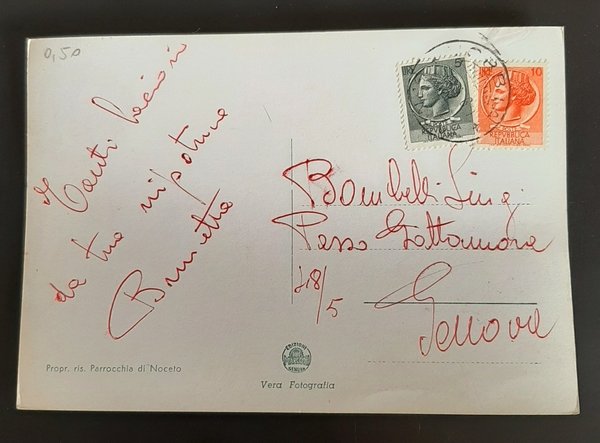 0,50
Tanti bacioni
da tua nipotina
Brunetta
5
REPUBBLICA
ITALIANA
10
REPUBBLICA
ITALIANA
Bombelli Luigi
Passo Gattamora
718/5
Genova
EDIZIONI
GENOVA
Propr. ris. Parrocchia di Noceto
Vera Fotografia